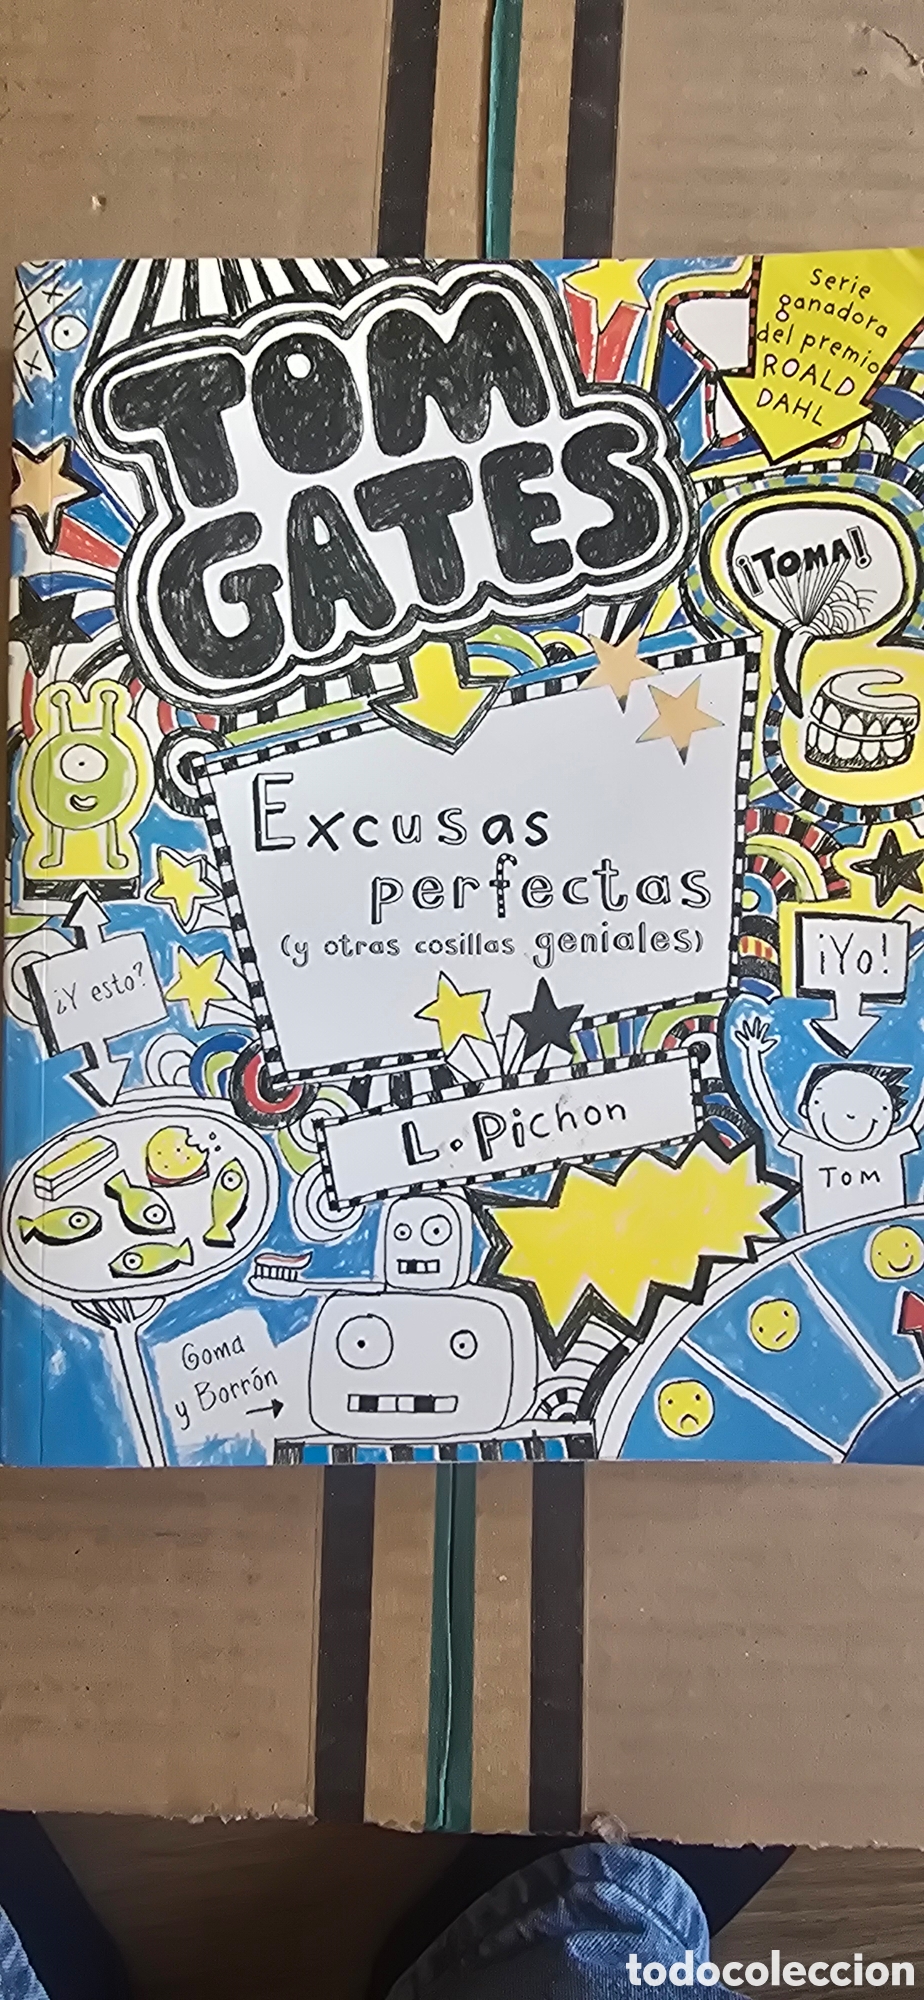 TOM
GATES
Serie
ganadora
del premio
ROALD
DAHL
¡TOMA!
Excusas
perfectas
(y otras cosillas geniales)
¿Y esto?
¡Yo!
L. Pichon
TOM
Goma
y Borrón
todocoleccion